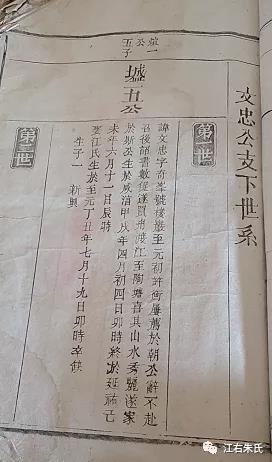 文忠公支下世系
第一世
諱文忠字奇峯號後巖至元初許衡屢薦於朝公辭不赴
召後詔書數促遂買舟渡江至陶塘喜其山水秀麗遂家
於斯公生於咸淳甲戌年四月初四日卯時終於延祐己
未年六月十一日辰時
娶江氏生於至元丁丑年七月十九日卯時卒俟
生子一 新興
墟一公五子
墟五公
第二世
江右朱氏